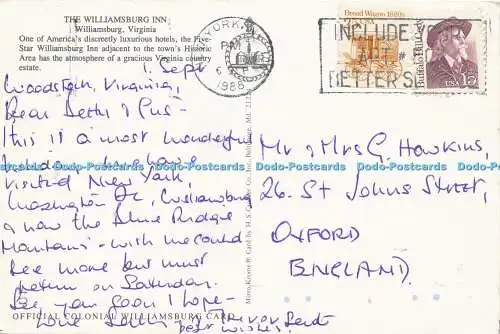 THE WILLIAMSBURG INN
Williamsburg, Virginia
One of America's discreetly luxurious hotels, the Five-
Star Williamsburg Inn adjacent to the town's Historic
Area has the atmosphere of a gracious Virginia country
estate.
1. Sept
Woodstock, Virginia,
Dear Betty & Gus -
This is a most wonderful
holiday - we have
visited New York,
Washington DC, Williamsburg
& now the Blue Ridge
Mountains - wish we could
see more but must
return on Saturday.
See you soon I hope -
Love
best wishes.
OFFICIAL COLONIAL WILLIAMSBURG CARD
Mirro-Krome® Card by H. S. Crocker Co., Inc., Baltimore, Md.
YORK
PM
6
1988
INCLUDE
APT
#
LETTERS
Bread Wagon 1880s
Buffalo Bill Cody
USA 15
Mr & Mrs G. Hawkins,
26. St Johns Street,
OXFORD
ENGLAND.
Dodo-Postcards.com Dodo-Postcards.com Dodo-Postcards.com